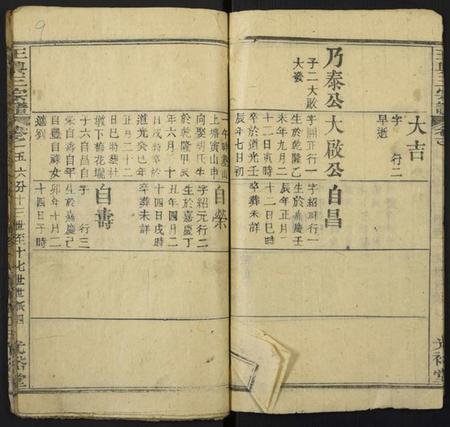 大吉
字 行二
早逝
乃泰公
子二大啟
大瓷
大啟公
字開正行一
生於乾隆乙
未年九月二
十二日寅時
卒於道光壬
辰年七月初
自昌
字紹嗣行一
生於嘉慶壬
辰年正月二
十二日巳時
卒葬未詳
一午時葬山
上塘寅山申
向娶胡氏生
於乾隆甲辰
年六月三十
日戌時卒於
道光癸巳年
正月二十二
日巳時葬社
墩下梅花塅
子六自昌自
榮自壽自年
自豐自祿女
適劉
自榮
字紹元行二
生於嘉慶丁
丑年四月二
十四日戌時
卒葬未詳
自壽
字 行三
生於嘉慶己
卯年十月二
十四日子時
光裕堂